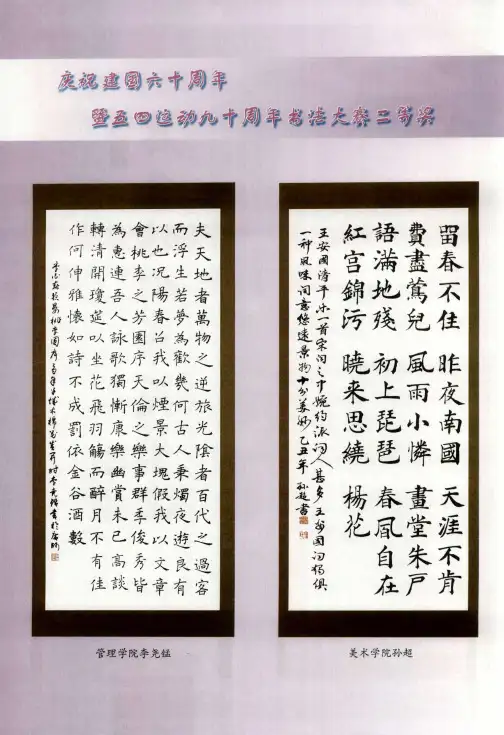 庆祝建国六十周年
暨五四运动九十周年书法大赛二等奖
夫天地者萬物之逆旅光陰者百代之過客
而浮生若夢為歡幾何古人秉燭夜遊良有
以也況陽春召我以煙景大塊假我以文章
會桃李之芳園序天倫之樂事群季俊秀皆
為惠連吾人詠歌獨慚康樂幽賞未已高談
轉清開瓊筵以坐花飛羽觴而醉月不有佳
作何伸雅懷如詩不成罰依金谷酒數
管理学院李尧锰
留春不住
費盡鶯兒
語滿地殘
紅宮錦污
昨夜南國
風雨小憐
初上琵琶
曉来思繞
天涯不肯
畫堂朱戸
春風自在
楊花
王安國清平乐一首宋词之中婉约派词人甚多王安國词独俱
一种風味词意悠遠景物十分美妙己丑年 孙超書
美术学院孙超